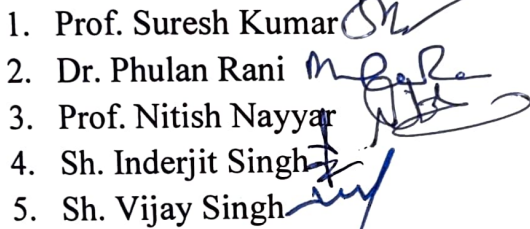 1. Prof. Suresh Kumar
2. Dr. Phulan Rani
3. Prof. Nitish Nayyar
4. Sh. Inderjit Singh
5. Sh. Vijay Singh